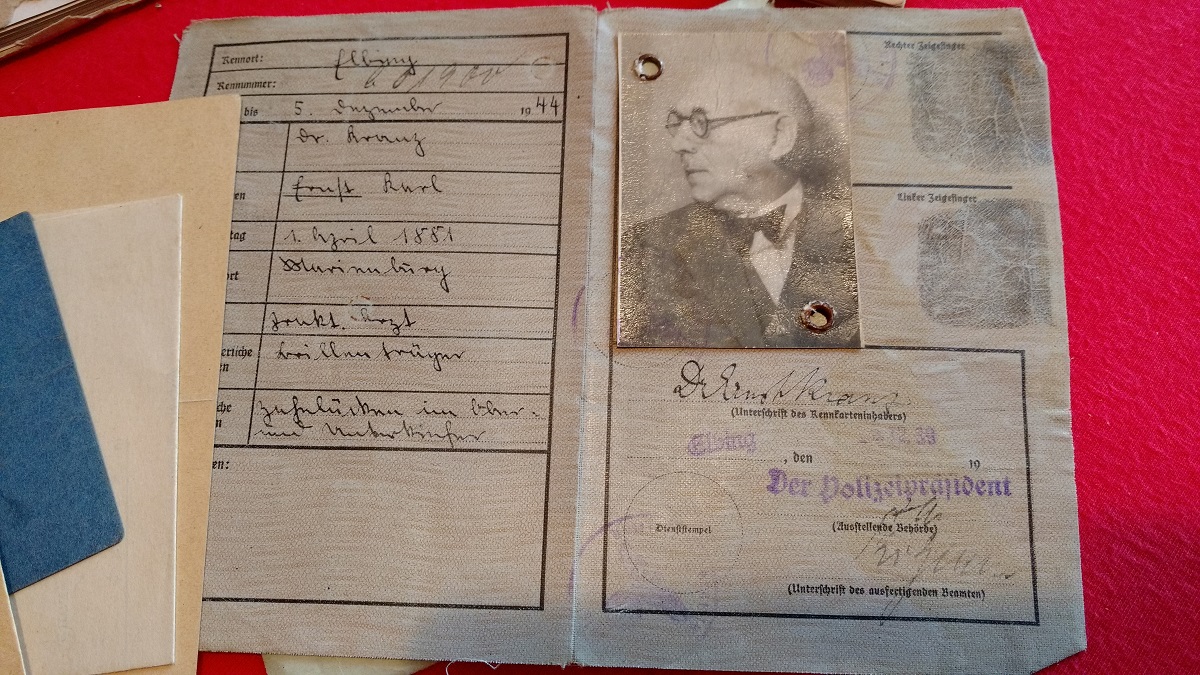 Kennort: Elbing
Kennummer:
bis 5. Dezember 1944
Dr. Kranz
en Ernst Karl
tag 1. April 1881
ort Marienburg
prakt. Arzt
erliche Brillenträger
en
che Zahnlücken im Ober-
n und Unterkiefer
en:
Rechter Zeigefinger
Linker Zeigefinger
Dr Ernst Kranz
(Unterschrift des Kennkarteninhabers)
Elbing, den 12. 39 19
Der Polizeipräsident
Dienststempel
(Ausstellende Behörde)
(Unterschrift des ausfertigenden Beamten)